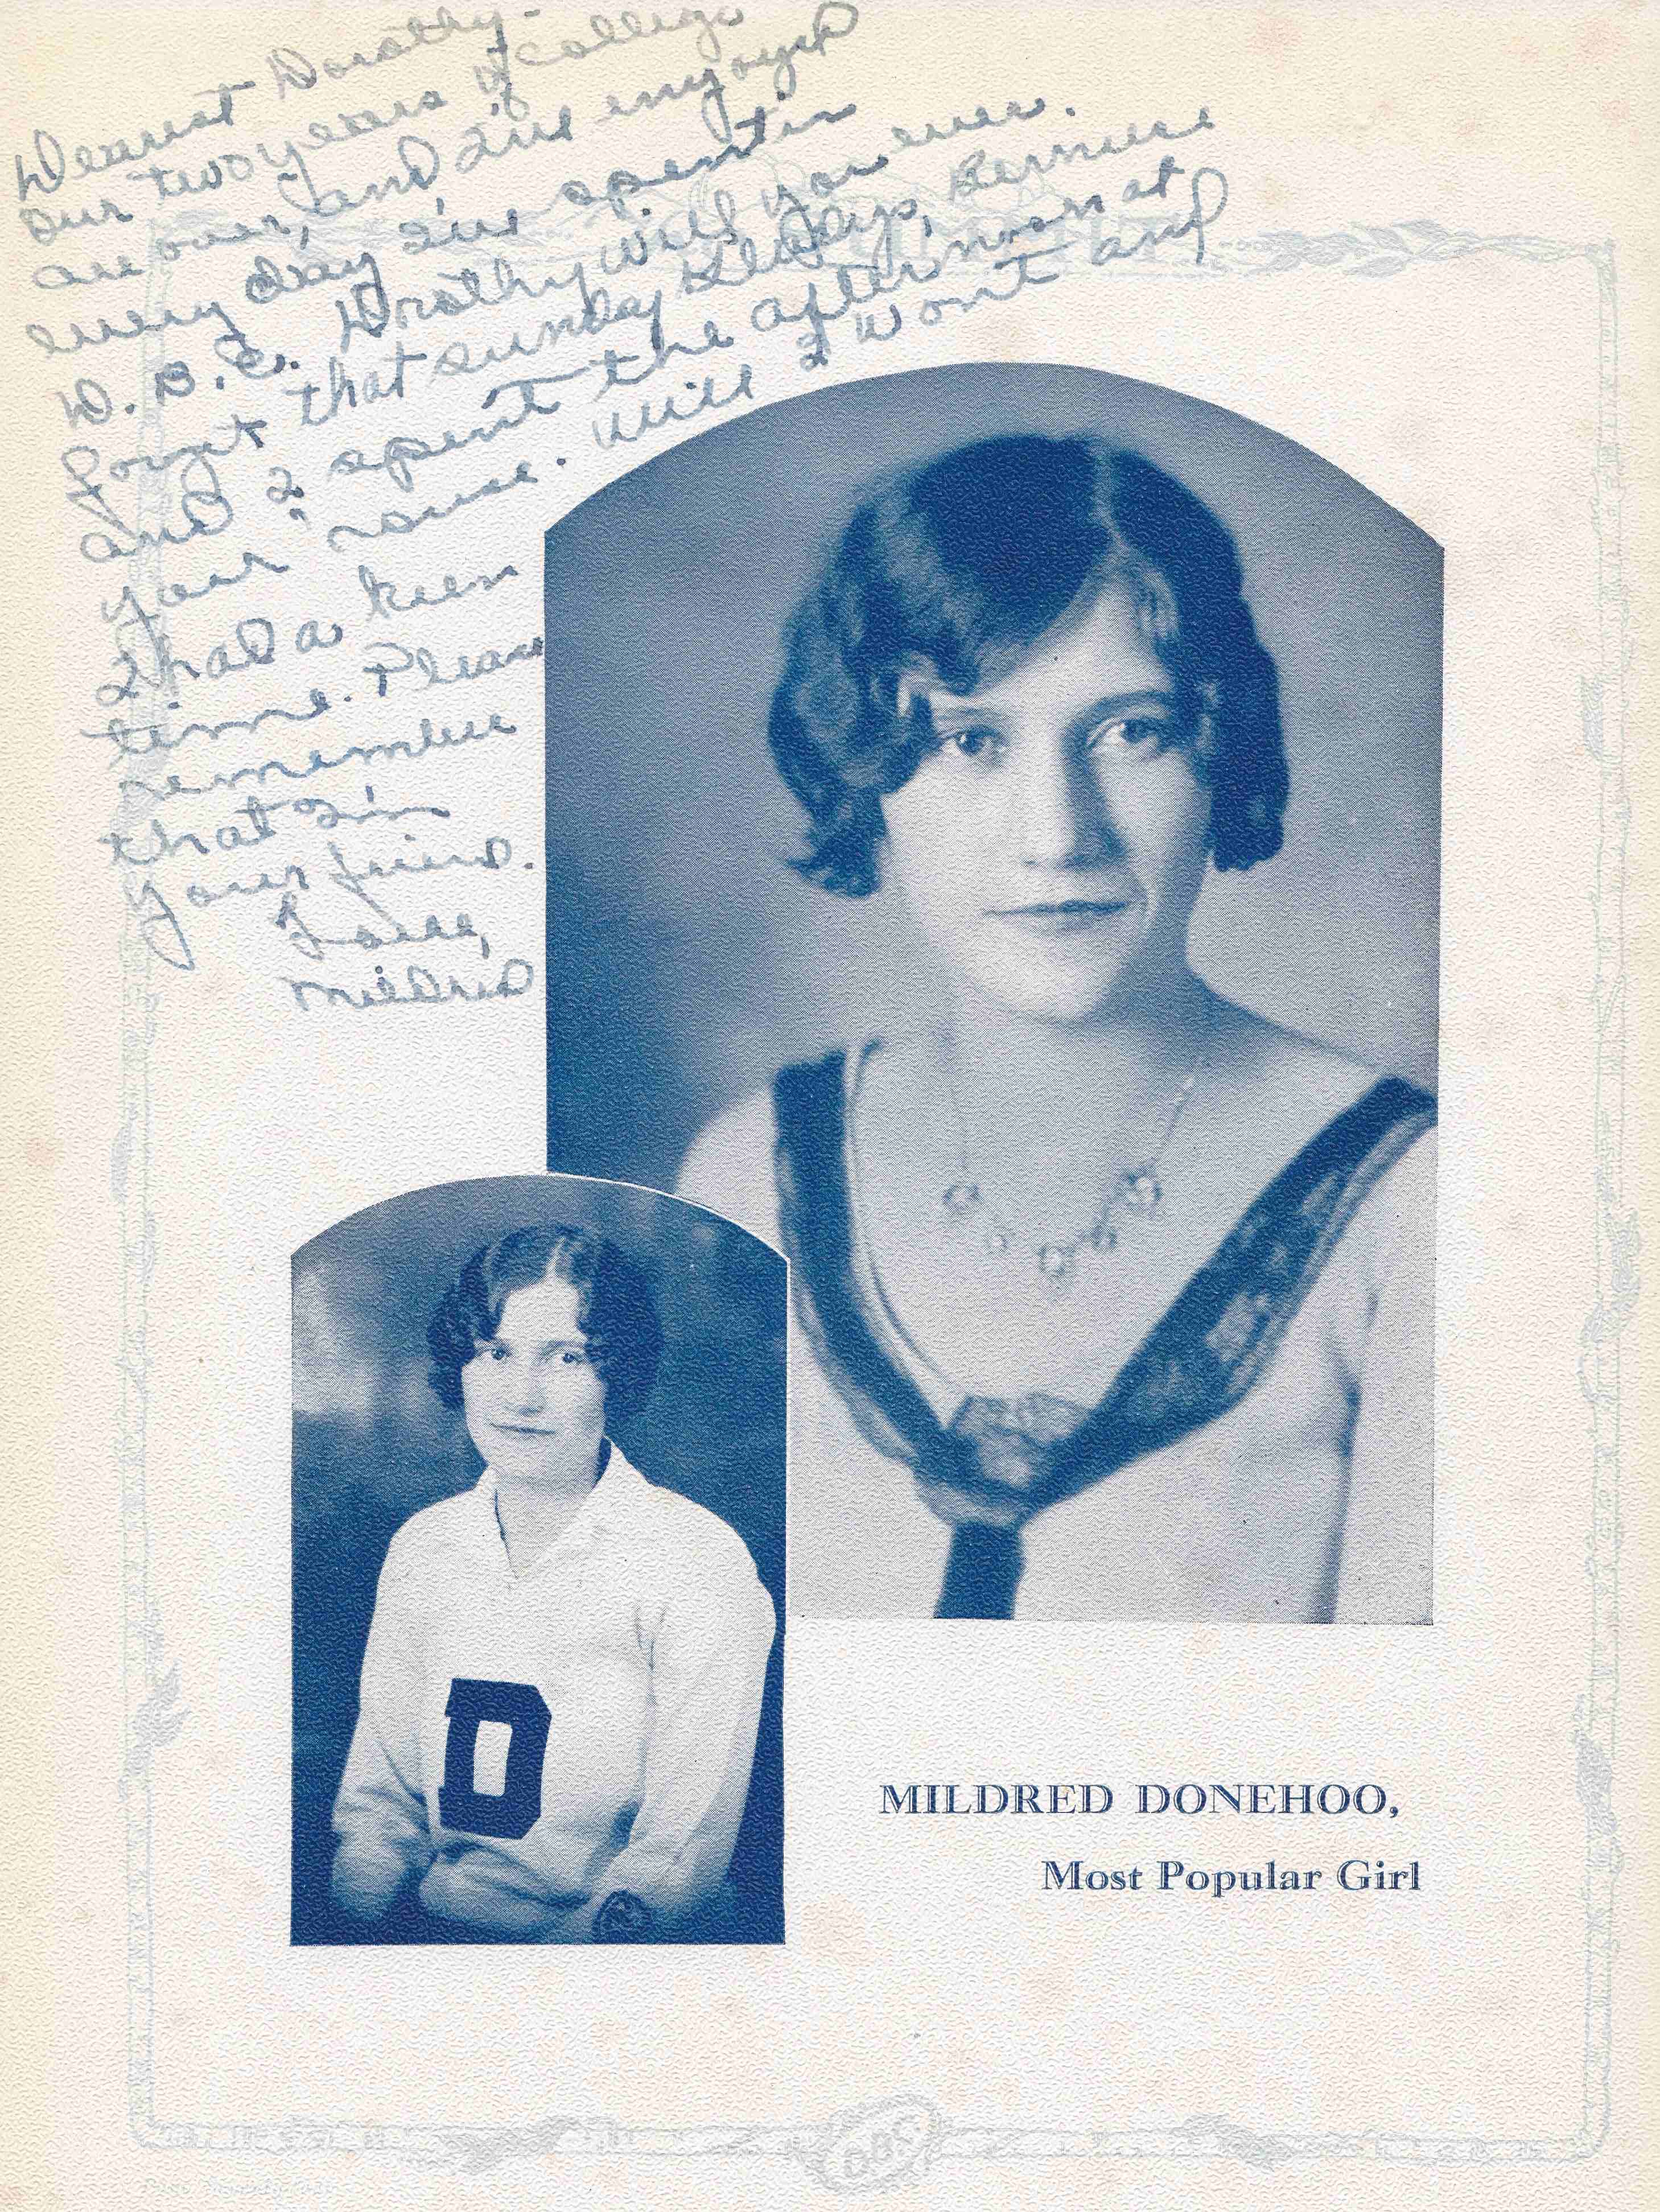 Dearest Dorothy-
Our two years of college
are over, and I've enjoyed
every day I've spent in
D. B. C. Dorothy will you ever.
forget that sunday Gladys, Bernice
and I spent the afternoon at
your house. Well I wont and
I had a keen
time. Please
remember
that I'm
your friend.
Love,
Mildred
MILDRED DONEHOO,
Most Popular Girl
D
DBC